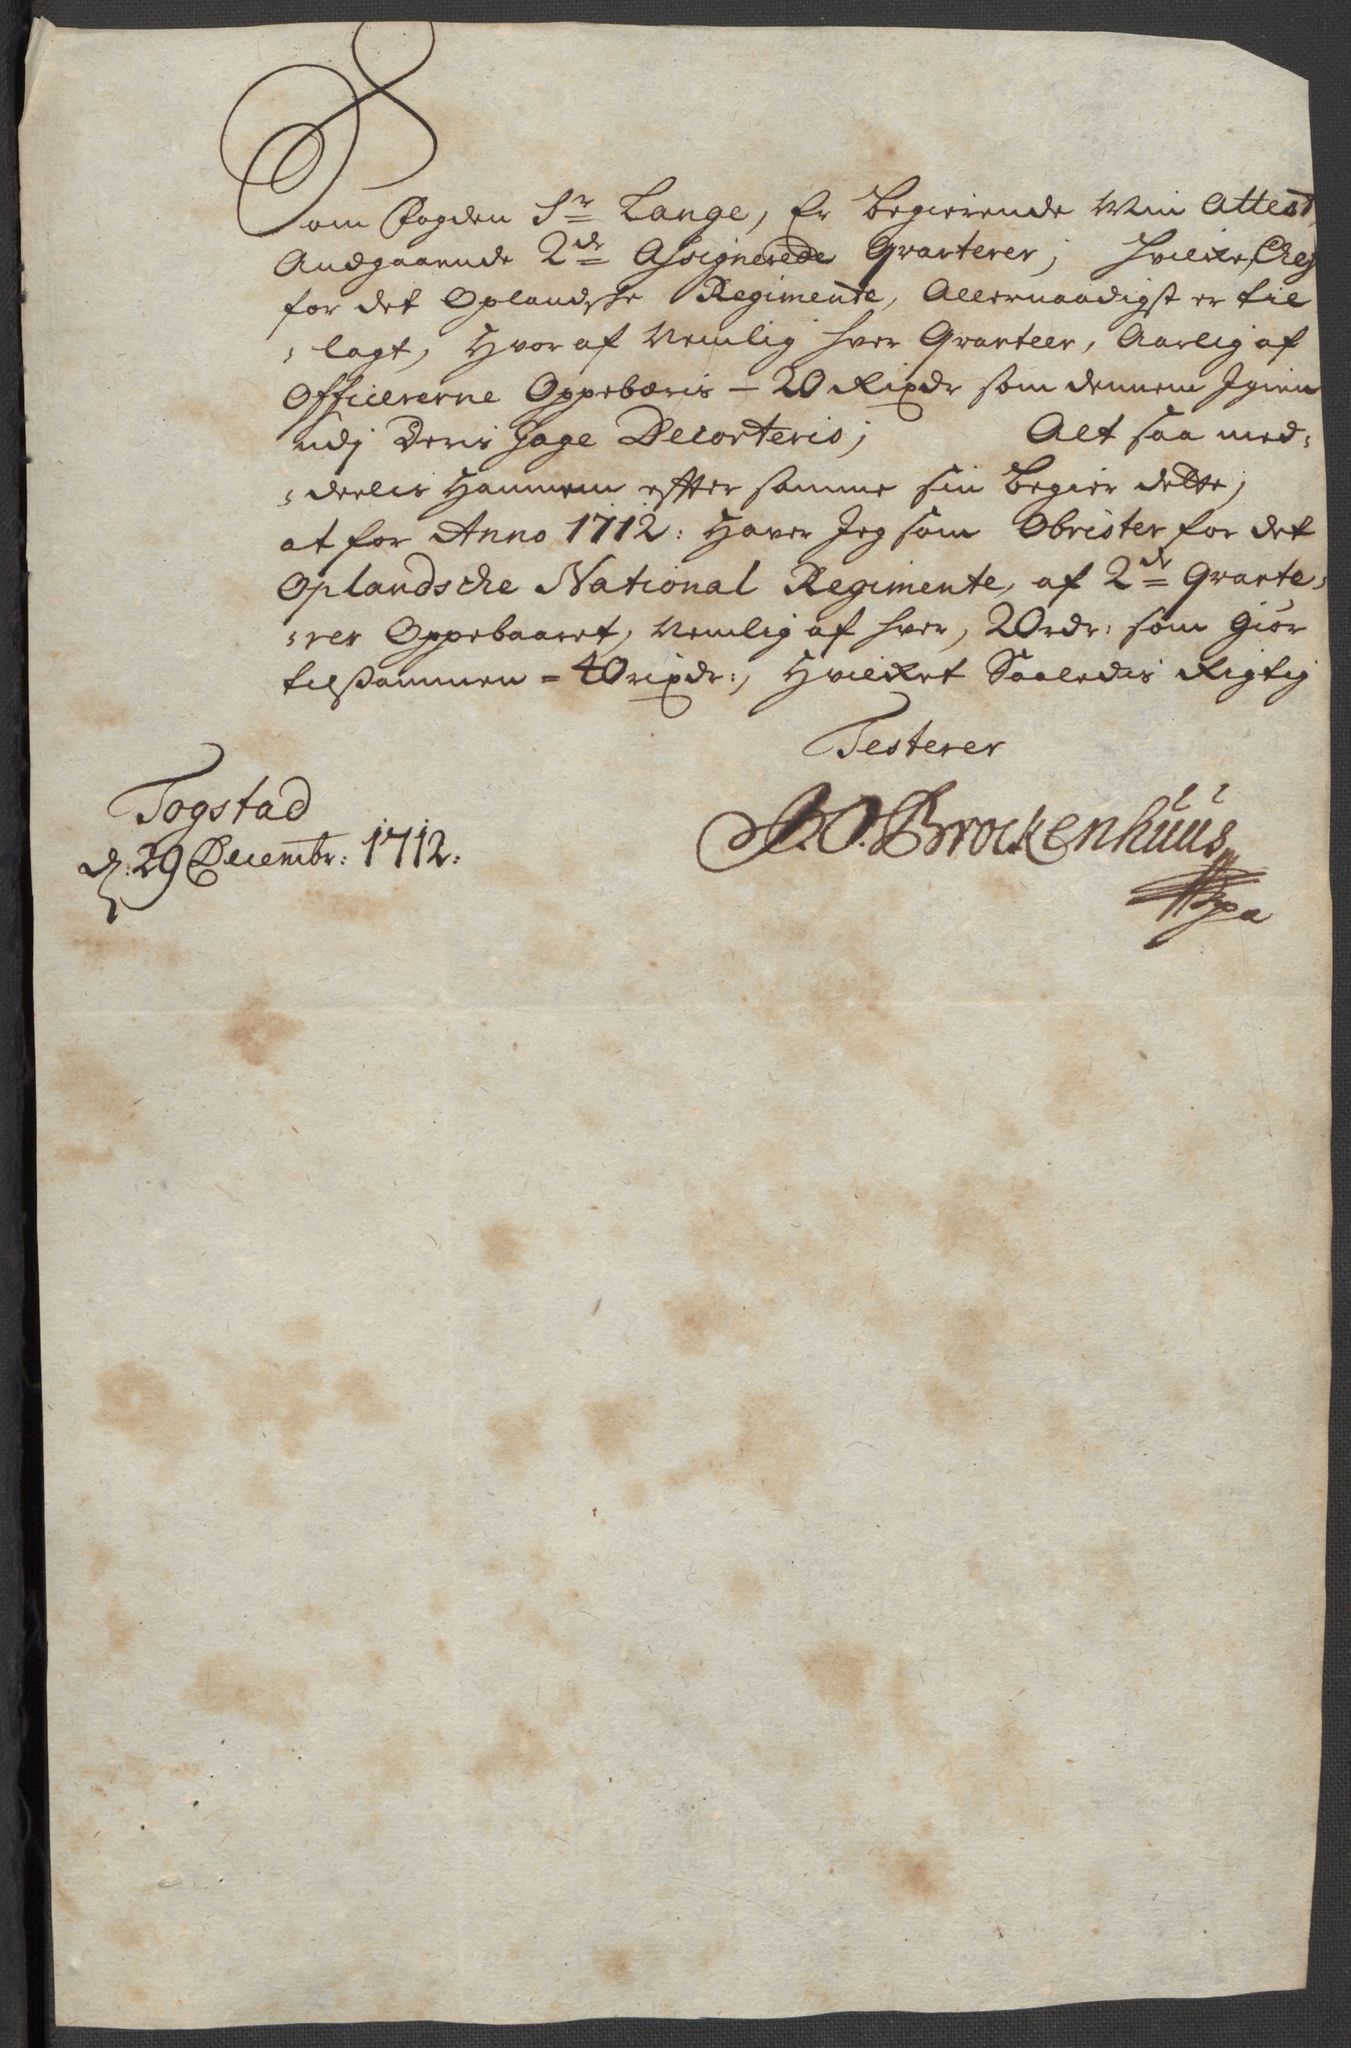 Som Fogden Sr Lange, Er begierende Min Attest,
Andgaaende 2de Assignerede Qvarterer; hvilke, Obr
for det Oplandske Regimente, Allernaadigst er til
= lagt, Hvoraf Nemlig hver Qvarteer, Aarlig af
Officererne Oppebæris – 20 Rixdr som dennem Igien
udj Deris gage Decorteris; Alt saa med=
= deelis Hannem effter samme sin Begier dette,
at for Anno 1712: Haver Jeg som Obrister for det
Oplandsche National Regimente, af 2de Qvarte=
=rer Oppebaaret, Nemlig af hver, 20 rdr: som Giør
tilsammen = 40 rixdr:, Hvilket Saaledis Rigtig
Testerer
Togstad
d: 29 Decembr: 1712:
Brockenhuus